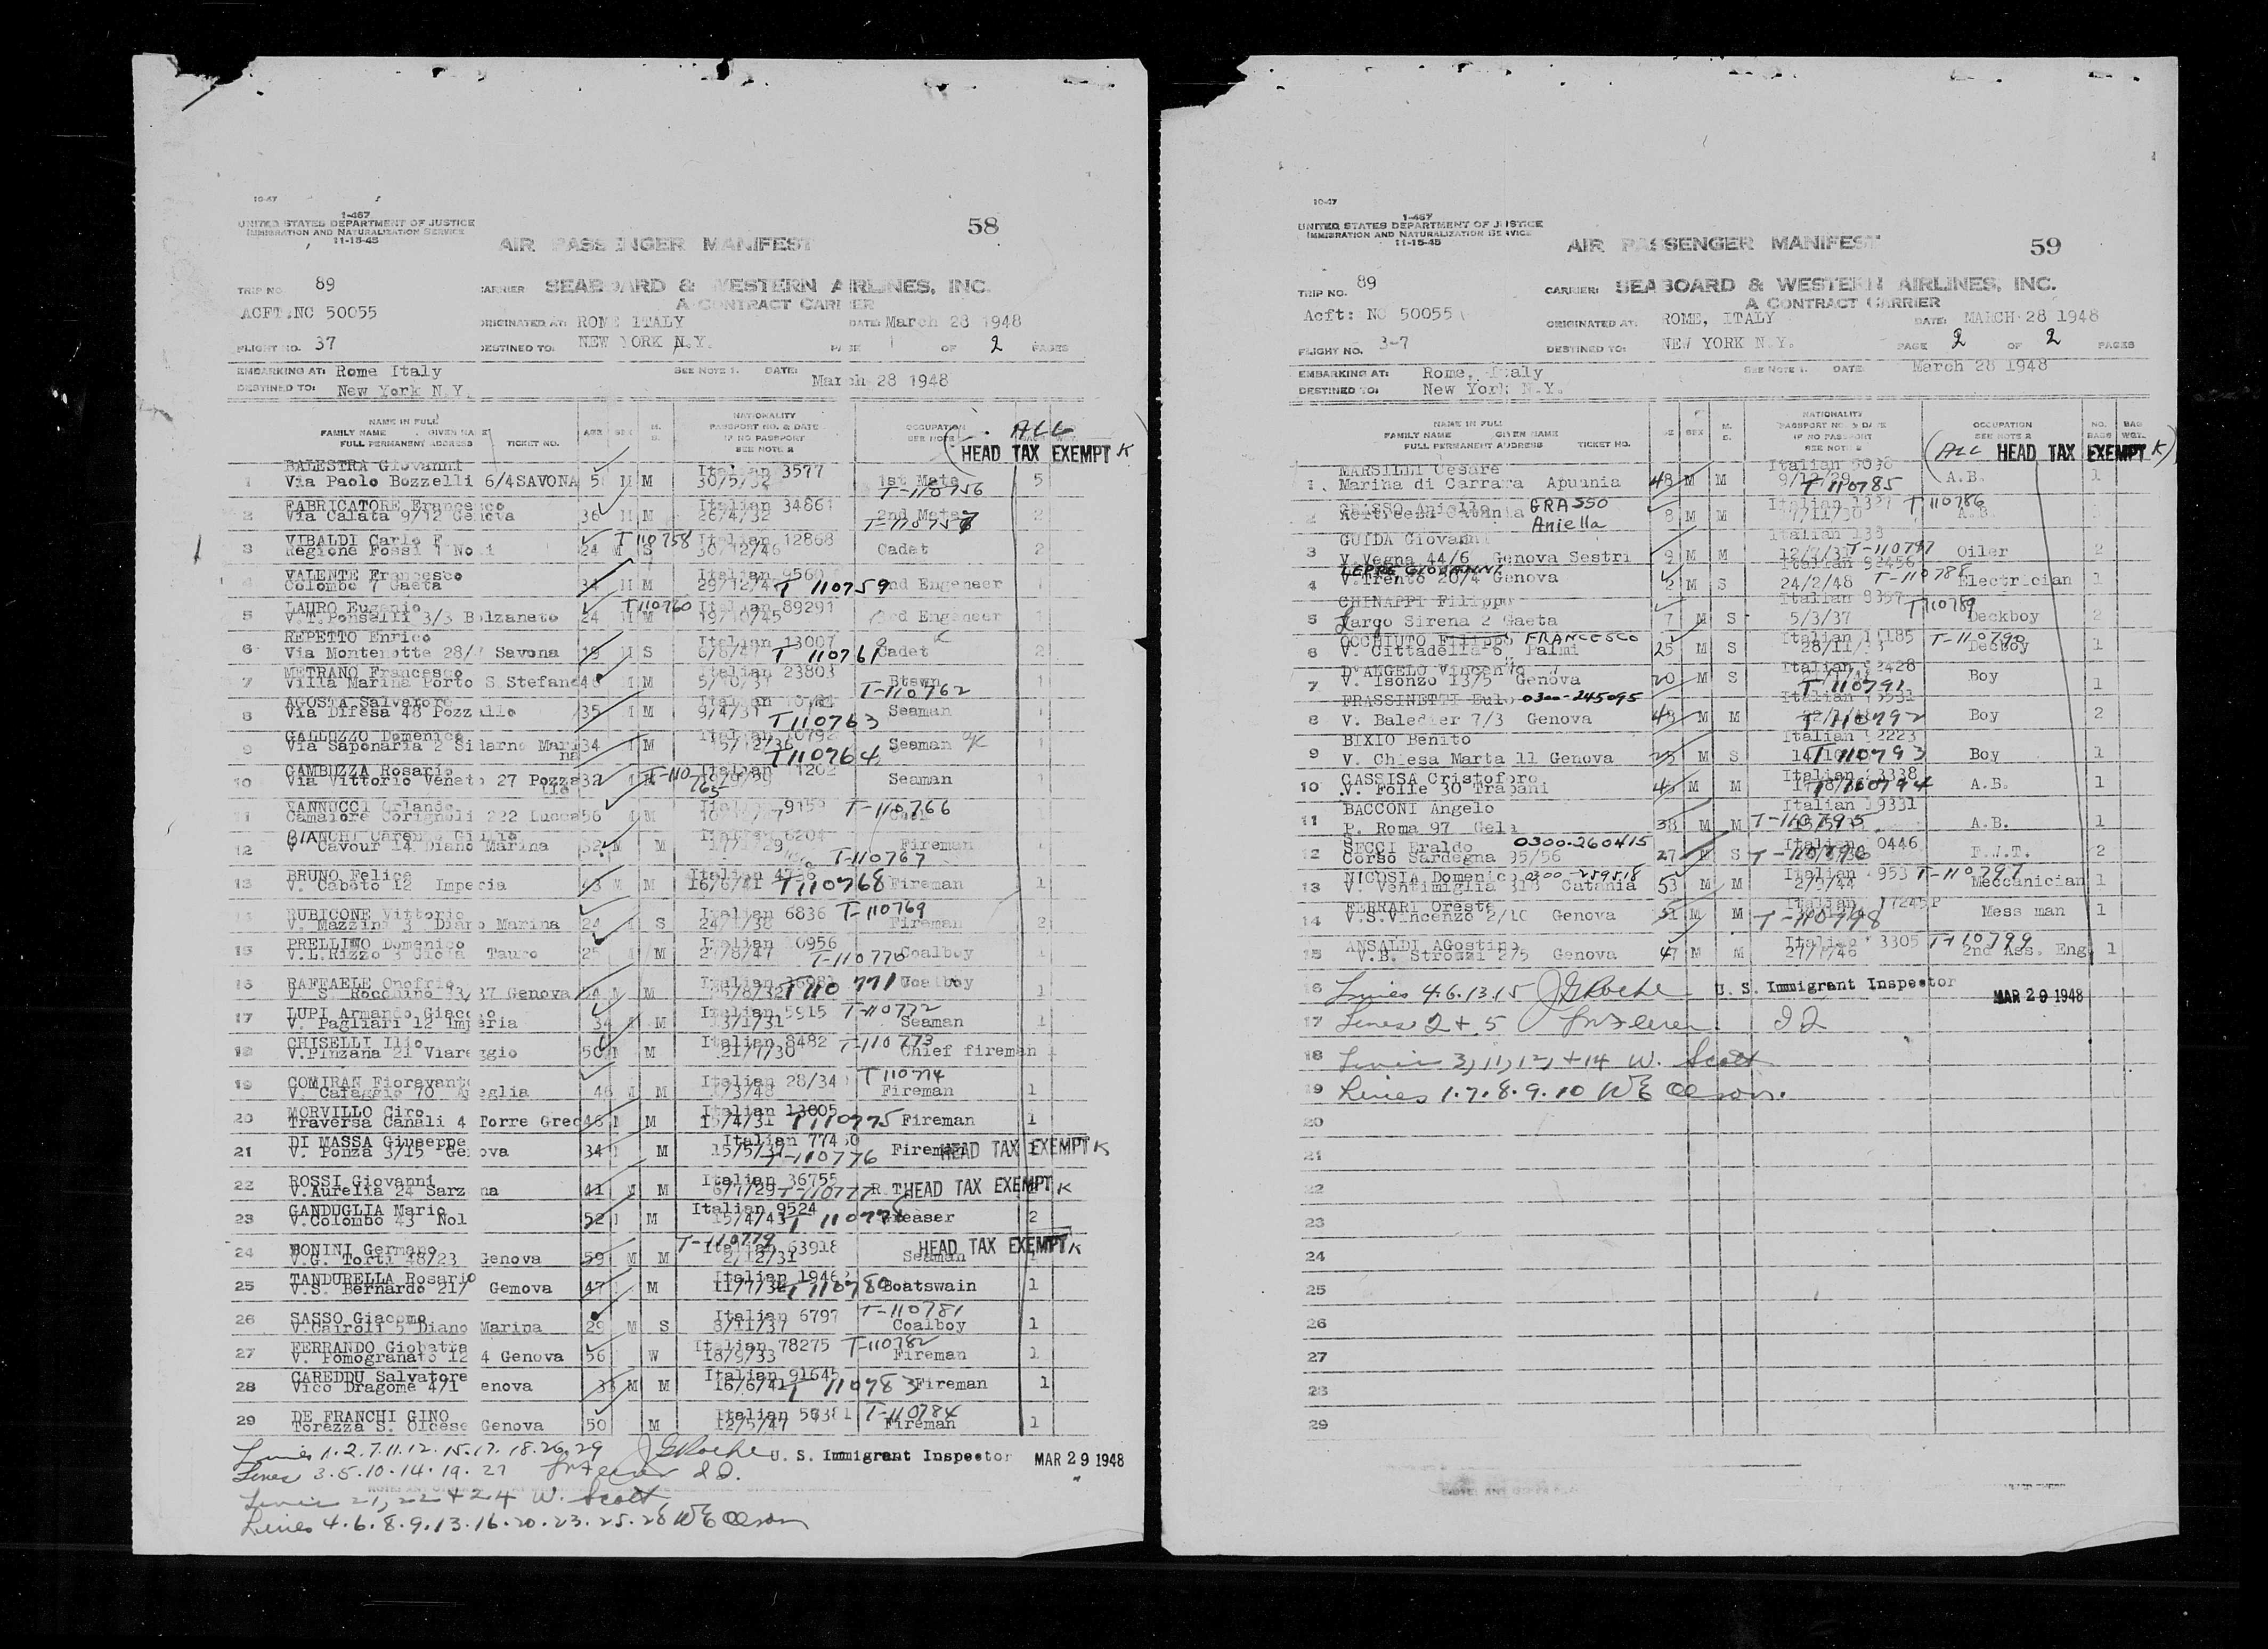 10-47
1-467
UNITED STATES DEPARTMENT OF JUSTICE
IMMIGRATION AND NATURALIZATION SERVICE
11-15-45
58
AIR PASSENGER MANIFEST
TRIP NO. 89
CARRIER SEABOARD & WESTERN AIRLINES, INC.
A CONTRACT CARRIER
ACFT:NC 50055
ORIGINATED AT: ROME ITALY DATE: March 28 1948
FLIGHT NO. 37 DESTINED TO: NEW YORK N.Y. PAGE 1 OF 2 PAGES
EMBARKING AT: Rome Italy SEE NOTE 1. DATE: March 28 1948
DESTINED TO: New York N.Y.
NAME IN FULL
FAMILY NAME GIVEN NAME
FULL PERMANENT ADDRESS TICKET NO. AGE SEX M. NATIONALITY
PASSPORT NO. & DATE
IF NO PASSPORT
SEE NOTE 2 OCCUPATION
SEE NOTE
(ALL
HEAD TAX EXEMPT K
BALESTRA Giovanni Italian 3577
1 Via Paolo Bozzelli 6/4 SAVONA 5 M M 30/5/32 1st Mate 5
T-110756
FABRICATORE Francesco Italian 34861
2 Via Calata 9/12 Genova 36 M M 26/4/32 2nd Mate 2
VIBALDI Carlo F T 110758 Italian 12868
3 Regione Fossi 1 Noli 24 M S 30/12/46 Cadet 2
VALENTE Francesco Italian 9560
4 Colombo 7 Gaeta 34 M M 29/12/47 T 110759 2nd Engeneer 1
LAURO Eugenio T110760 Italian 89291
5 V.T.Ponselli 3/3 Bolzaneto 24 M M 19/10/45 3rd Engeneer 1
REPETTO Enrico Italian 13007
6 Via Montenotte 28/ Savona 19 M S 6/8/47 T 110761 Cadet 2
METRANO Francesco Italian 23803
7 Villa Marina Porto S Stefano 46 M M 5/10/31 Btswn 1
T-110762
AGOSTA Salvatore Italian
8 Via Difesa 48 Pozzallo 35 M 9/4/31 T110763 Seaman 1
GALLUZZO Domenico Italian 10792
9 Via Saponaria 2 Silarno Mari na 34 M 15/12/36 T110764 Seaman 1
GAMBUZZA Rosario Italian 11202
10 Via Vittorio Veneto 27 Pozza llo 32 M T-110 765 Seaman 1
VANNUCCI Orlando Italian 9159 T-110766
11 Camaiore Corignoli 222 Lucca 56 M M
BIANCHI Carenzo Giulio Italian 6204
12 V Cavour 14 Diano Marina 52 M M Fireman 1
T-110767
BRUNO Felice Italian 4736
13 V. Caboto 12 Imperia 43 M M 16/6/41 T110768 Fireman 1
RUBICONE Vittorio Italian 6836 T-110769
14 V. Mazzini 3 Diano Marina 24 M S 24/1/38 Fireman 2
PRELLINO Domenico Italian 10956
15 V.L.Rizzo 3 Gioia Tauro 25 M M 27/8/47 T-110770 Coalboy 1
RAFFAELE Onofrio Italian
16 V. S. Rocchino 33/37 Genova 54 M M T110 771 Coalboy 1
LUPI Armando Giacomo Italian 5915 T-110772
17 V. Pagliari 12 Imperia 34 M 13/1/31 Seaman 1
CHISELLI Ilio Italian 8482 T-110773
18 V.Pinzana 21 Viareggio 50 M M 21/7/30 Chief fireman 1
COMIRAN Fioravante Italian 28/34 T110774
19 V. Cafaggio 70 Ameglia 46 M M /3/48 Fireman 1
MORVILLO Ciro Italian 13605
20 Traversa Canali 4 Torre Grec 46 M M 15/4/31 T110775 Fireman 1
DI MASSA Giuseppe Italian 77430
21 V. Ponza 3/15 Genova 34 M 15/5/37 T-110776 Fireman HEAD TAX EXEMPT K
ROSSI Giovanni Italian 36755
22 V.Aurelia 24 Sarzana 41 M M 6/7/29 T-110777 HEAD TAX EXEMPT K
GANDUGLIA Mario Italian 9524
23 V.Colombo 43 Nol 52 M 15/4/43 T 110778 Greaser 2
BONINI Germano T-110779 Italian 63918 HEAD TAX EXEMPT K
24 V.G. Torti 48/23 Genova 59 M M 2/12/31 Seaman
TANDURELLA Rosario Italian 1946
25 V.S. Bernardo 21/ Gemova 47 M 11/7/32 T110780 Boatswain 1
SASSO Giacomo Italian 6797 T-110781
26 V.Cairoli 5 Diano Marina 29 M S 8/11/37 Coalboy 1
FERRANDO Giobatta Italian 78275 T-110782
27 V. Pomogranato 12 4 Genova 56 W 18/9/33 Fireman 1
CAREDDU Salvatore Italian 91645
28 Vico Dragome 4/1 enova 33 M M 16/6/41 T 110783 Fireman 1
DE FRANCHI GINO Italian T-110784
29 Torezza S. Olcese Genova 50 M 12/5/47 Fireman 1
Lines 1.2.7.11.12.15.17.18.26.29 JGRoche U. S. Immigrant Inspector MAR 29 1948
Lines 3.5.10.14.19.27
Lines 21, 22 + 24 W. Scott
Lines 4.6.8.9.13.16.20.23.25.28 WE Olson
10-47
1-467
UNITED STATES DEPARTMENT OF JUSTICE
IMMIGRATION AND NATURALIZATION SERVICE
11-15-45
59
AIR PASSENGER MANIFEST
TRIP NO. 89
CARRIER: SEABOARD & WESTERN AIRLINES, INC.
A CONTRACT CARRIER
Acft: NC 50055
ORIGINATED AT: ROME, ITALY DATE: MARCH 28 1948
FLIGHT NO. 3-7 DESTINED TO: NEW YORK N.Y. PAGE 2 OF 2 PAGES
EMBARKING AT: Rome, Italy SEE NOTE 1. DATE March 28 1948
DESTINED TO: New York N.Y.
NAME IN FULL
FAMILY NAME GIVEN NAME
FULL PERMANENT ADDRESS TICKET NO. SEX NATIONALITY
PASSPORT NO. & DATE
IF NO PASSPORT
SEE NOTE 2 OCCUPATION
SEE NOTE 2 NO. BAGS BAG WGT.
(ALL HEAD TAX EXEMPT K)
MARSILLI Cesare Italian
1 Marina di Carrara Apuania 48 M M T110785 A.B. 1
GRASSO Aniella Italian T110786
2 8 M M A.B.
GUIDA Giovanni Italian
3 V.Vegna 44/6 Genova Sestri 9 M M Oiler 2
LEPRE GIOVANNI Italian 92456
4 V.Trento 20/4 Genova 2 M S 24/2/48 T-110788 Electrician 1
CHINAPPI Filippo Italian 8397 T110789
5 Largo Sirena 2 Gaeta 7 M S 5/3/37 Deckboy 2
OCCHIUTO Filippo FRANCESCO Italian 11185 T-110790
6 V. Cittadella 6, Palmi 25 M S Decboy 1
D'ANGELO Vincenzo Italian 3428
7 V. Isonzo 13/5 Genova 20 M S T110791 Boy 1
FRASSINETTI Eulo 0300-245095 Italian
8 V. Baledier 7/3 Genova 48 M M T110792 Boy 2
BIXIO Benito Italian 2223
9 V. Chiesa Marta 11 Genova 25 M S T110793 Boy 1
CASSISA Cristoforo Italian 3338
10 V. Folle 30 Trapani 45 M M T110794 A.B. 1
BACCONI Angelo Italian 19331
11 P. Roma 97 Gela 38 M M T-110795 A.B. 1
SECCI Eraldo 0300-260415 Italian 0446
12 Corso Sardegna 95/56 27 M S T-110796 F.W.T. 2
NICOSIA Domenico 0300-259518 Italian 4953 T-110797
13 V. Ventimiglia 318 Catania 53 M M 2/5/44 Meccanician 1
FERRARI Oreste Italian 17245P
14 V.S.Vincenzo 2/10 Genova 51 M M T-110798 Mess man 1
ANSALDI AGostino Italian 3305 T-110799
15 V.B. Strozzi 2/5 Genova 47 M M 27/7/46 2nd Ass. Eng 1
16 Lines 4.6.13.15 JGRoche U. S. Immigrant Inspector MAR 29 1948
17 Lines 2 + 5
18 Lines 3, 11, 12, + 14 W. Scott
19 Lines 1.7.8.9.10 WE Olson.
20
21
22
23
24
25
26
27
28
29